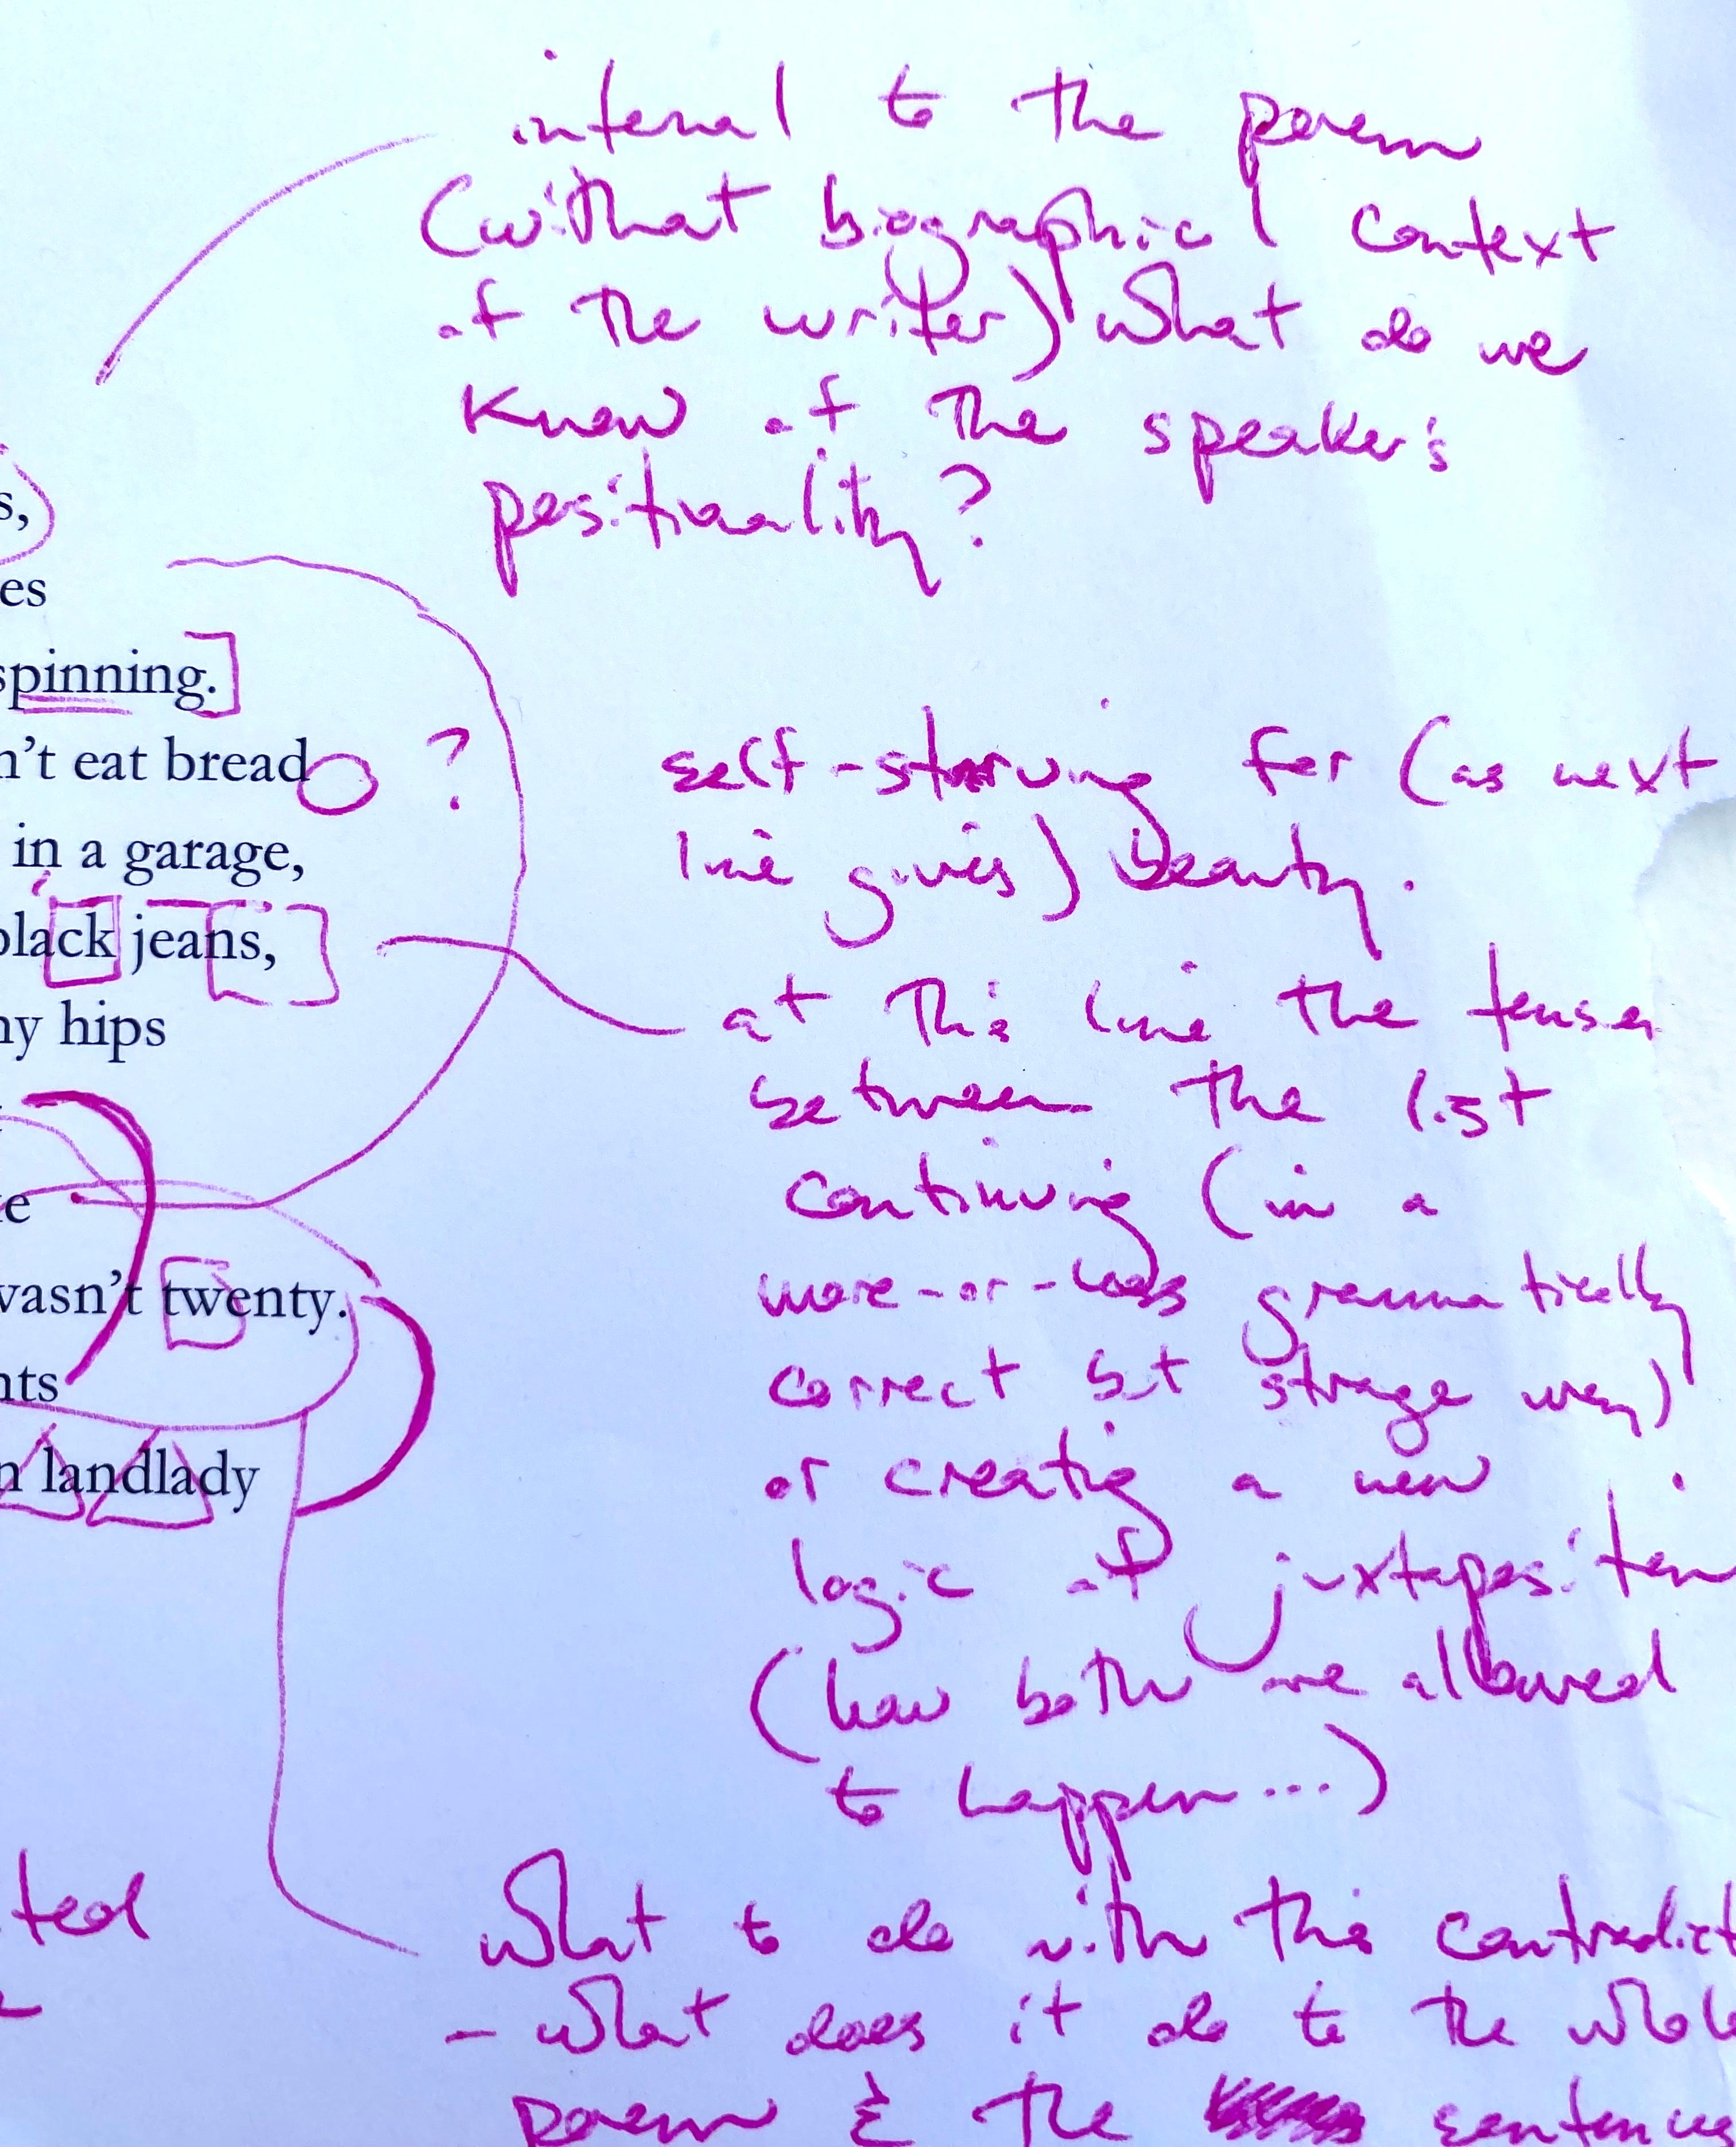 internal to the poem
(without biographical context
of the writer) what do we
know of the speaker's
positionality?
s,
es
spinning.
n't eat bread ?
self-starving for (as next
line gives) beauty.
in a garage,
black jeans,
my hips
at this line the tension
between the list
continuing (in a
more-or-less grammatically
correct but strange way)
or creating a new
logic of juxtaposition
(how both are allowed
to happen...)
te
wasn't twenty.
nts
n landlady
ted
what to do with this contradict
- what does it do to the whole
poem & the sentences